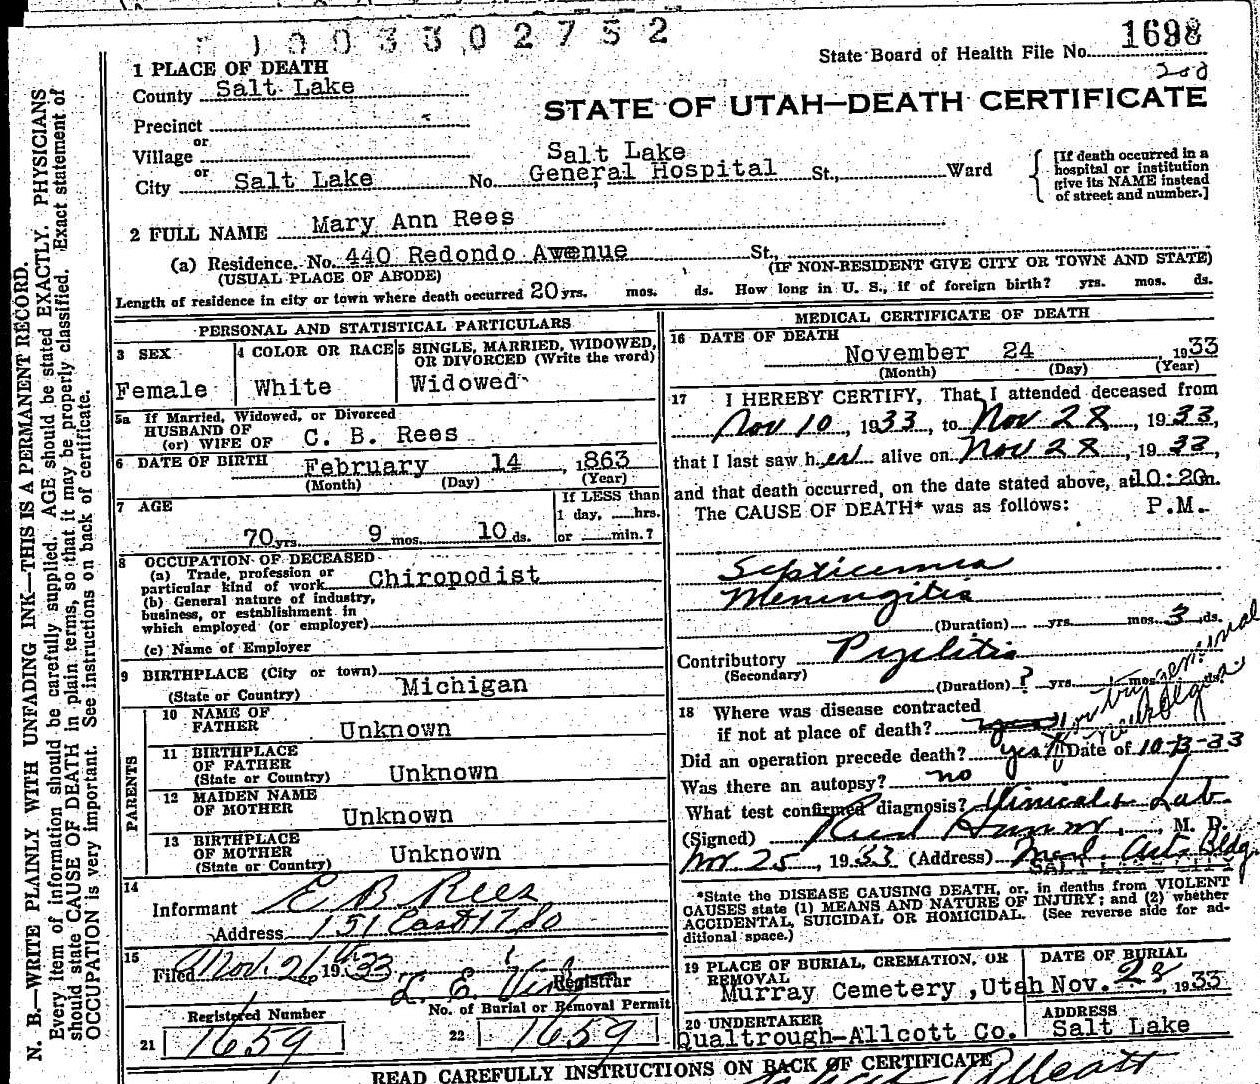 1003302752
State Board of Health File No. 1698
1 PLACE OF DEATH
County Salt Lake
STATE OF UTAH—DEATH CERTIFICATE
Precinct
or
Village
or
City Salt Lake No. Salt Lake General Hospital St., Ward
[If death occurred in a hospital or institution give its NAME instead of street and number.]
2 FULL NAME Mary Ann Rees
(a) Residence. No. 440 Redondo Awenue St.,
(USUAL PLACE OF ABODE) (IF NON-RESIDENT GIVE CITY OR TOWN AND STATE)
Length of residence in city or town where death occurred 20 yrs. mos. ds. How long in U. S., if of foreign birth? yrs. mos. ds.
PERSONAL AND STATISTICAL PARTICULARS
3 SEX
Female
4 COLOR OR RACE
White
5 SINGLE, MARRIED, WIDOWED,
OR DIVORCED (Write the word)
Widowed
5a If Married, Widowed, or Divorced
HUSBAND OF
(or) WIFE OF C. B. Rees
6 DATE OF BIRTH February 14, 1863
(Month) (Day) (Year)
7 AGE
70 yrs. 9 mos. 10 ds.
If LESS than
1 day, hrs.
or min.?
8 OCCUPATION OF DECEASED
(a) Trade, profession or
particular kind of work Chiropodist
(b) General nature of industry,
business, or establishment in
which employed (or employer)
(c) Name of Employer
9 BIRTHPLACE (City or town)
(State or Country) Michigan
PARENTS
10 NAME OF
FATHER Unknown
11 BIRTHPLACE
OF FATHER
(State or Country) Unknown
12 MAIDEN NAME
OF MOTHER Unknown
13 BIRTHPLACE
OF MOTHER
(State or Country) Unknown
14
Informant E B Rees
Address 151 East 17 So
15
Filed Nov. 1933 L. E.
Registrar
Registered Number
21 1659
No. of Burial or Removal Permit
22 1659
MEDICAL CERTIFICATE OF DEATH
16 DATE OF DEATH
November 24, 1933
(Month) (Day) (Year)
17 I HEREBY CERTIFY, That I attended deceased from
Nov 10, 1933, to Nov 28, 1933,
that I last saw her alive on Nov 28, 1933,
and that death occurred, on the date stated above, at 10:20 m.
The CAUSE OF DEATH* was as follows: P.M.
Septicemia
Meningitis
(Duration) yrs. mos. 3 ds.
Contributory Pyelitis
(Secondary)
(Duration) ? yrs. mos. ds.
18 Where was disease contracted
if not at place of death?
Did an operation precede death? yes Date of 10-13-33
Was there an autopsy? no
What test confirmed diagnosis? Clinical & Lab
(Signed) M. D.
Nov 25, 1933 (Address) Med. Arts Bldg.
*State the DISEASE CAUSING DEATH, or, in deaths from VIOLENT
CAUSES state (1) MEANS AND NATURE OF INJURY; and (2) whether
ACCIDENTAL, SUICIDAL OR HOMICIDAL. (See reverse side for ad-
ditional space.)
19 PLACE OF BURIAL, CREMATION, OR
REMOVAL
Murray Cemetery, Utah
DATE OF BURIAL
Nov. 28, 1933
20 UNDERTAKER
Qualtrough-Allcott Co.
ADDRESS
Salt Lake
READ CAREFULLY INSTRUCTIONS ON BACK OF CERTIFICATE
N. B.—WRITE PLAINLY WITH UNFADING INK—THIS IS A PERMANENT RECORD.
Every item of information should be carefully supplied. AGE should be stated EXACTLY. PHYSICIANS
should state CAUSE OF DEATH in plain terms, so that it may be properly classified. Exact statement of
OCCUPATION is very important. See instructions on back of certificate.